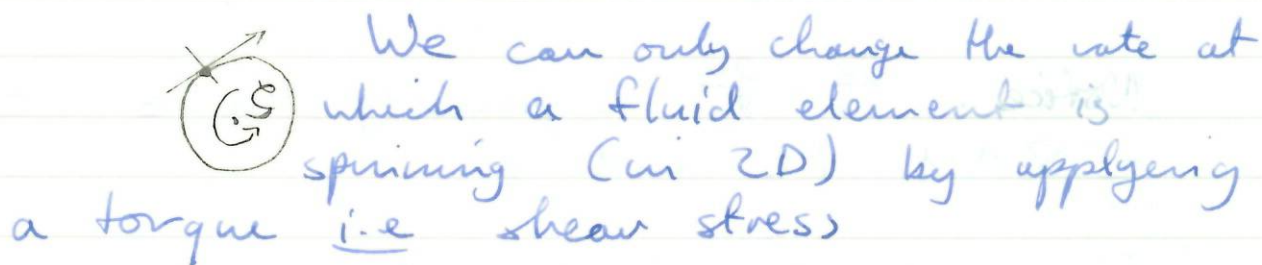 We can only change the rate at
ζ which a fluid element is
spinning (in 2D) by applying
a torque i.e shear stress